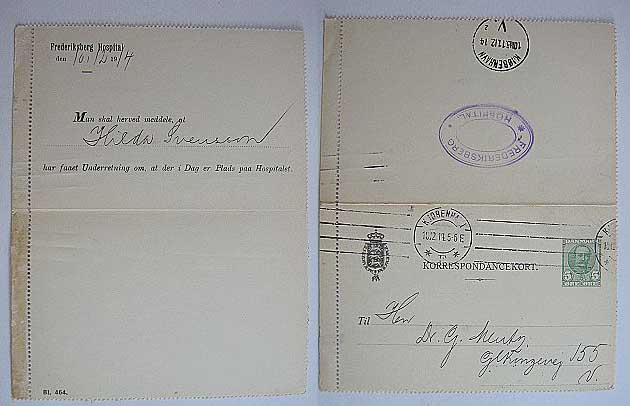 Frederiksberg Hospital
den 10/12 1914
Man skal herved meddele, at
Hilda Svensson
har faaet Underretning om, at der i Dag er Plads paa Hospitalet.
BI. 464.
KJØBENHAVN
V
2
FREDERIKSBERG
HOSPITAL
KJØBENHAVN
10.12.14. 5-6 E
DANMARK
5 5
KORRESPONDANCEKORT.
Til Herr
Dr. G. Mentz
Gl Kongevej 155
V.